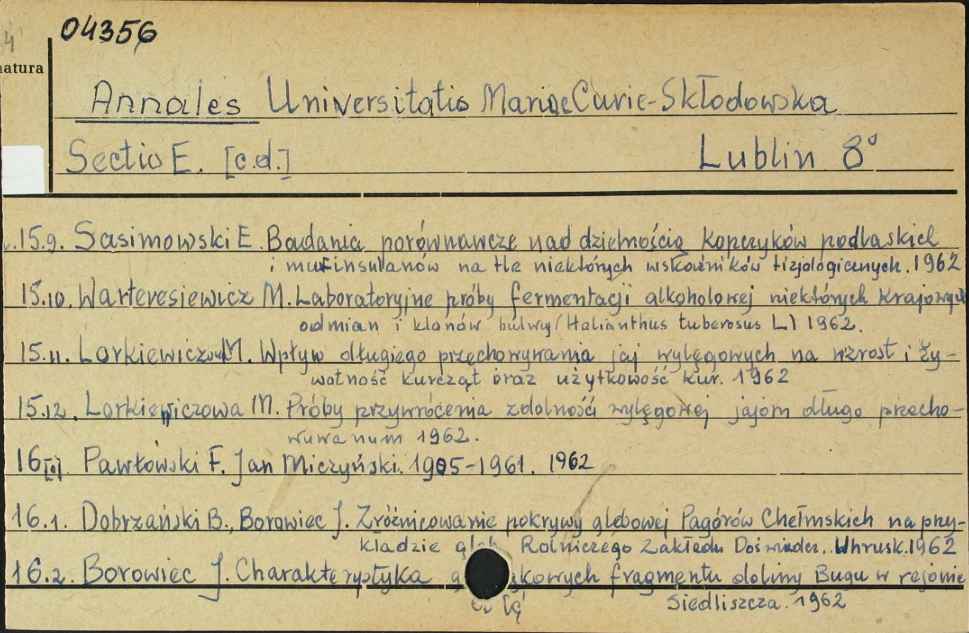 04356
natura
Annales Universitatis Mariae Curie-Skłodowska
Sectio E. [c.d.] Lublin 8°
15.9. Sasimowski E. Badania porównawcze nad dzielnością kopczyków podlaskich
i mu insulanów na tle niektórych wskaźników fizjologicznych. 1962
15.10. Warteresiewicz M. Laboratoryjne próby fermentacji alkoholowej niektórych krajowych
odmian i klonów bulwy (Halianthus tuberosus L) 1962.
15.11. M. Wpływ długiego przechowywania jaj wylęgowych na wzrost i ży-
wotność kurcząt oraz użytkowość kur. 1962
15.12. Lorkiewiczowa M. Próby przywrócenia zdolności wylęgowej jajom długo przecho-
wywanym 1962.
16[0]. Pawłowski F. Jan Miczyński. 1905-1961. 1962
16.1. Dobrzański B., Borowiec J. Zróżnicowanie pokrywy glebowej Pagórów Chełmskich na przy-
kładzie gleb Rolniczego Zakładu Doświadcz. Uhrusk. 1962
16.2. Borowiec J. Charakterystyka fragmentu doliny Bugu w rejonie
Siedliszcza. 1962